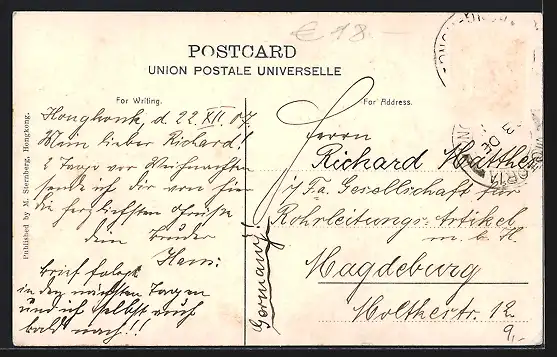 € 18.-
POSTCARD
UNION POSTALE UNIVERSELLE
For Writing.
For Address.
Published by M. Sternberg, Hongkong.
Honghonk, d 22 XII 07.
Mein lieber Richard!
2 Tage vor Weihnachten
sende ich dir von hier
die herzlichsten Grüße
dein Bruder
Brief folgt
in den nächsten Tagen
und ich selbst auch
bald nach!!
Germany!
Herrn
Richard Matthes
i/Fa. Gesellschaft für
Rohrleitungs-Artikel
m. b. H.
Magdeburg
Moltkestr. 12
9,-
VICTORIA
DE